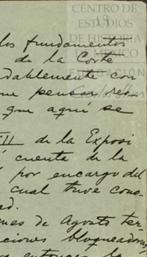 CENTRO DE
ESTUDIOS
DE HISTORIA
los fundamentos
de la Corte
dablemente con
que pensar res
que aquí se
VII de la Exposi
cuenta de la
por encargo del
cual tuve cono
mes de Agosto ter
ciones bloqueadoras